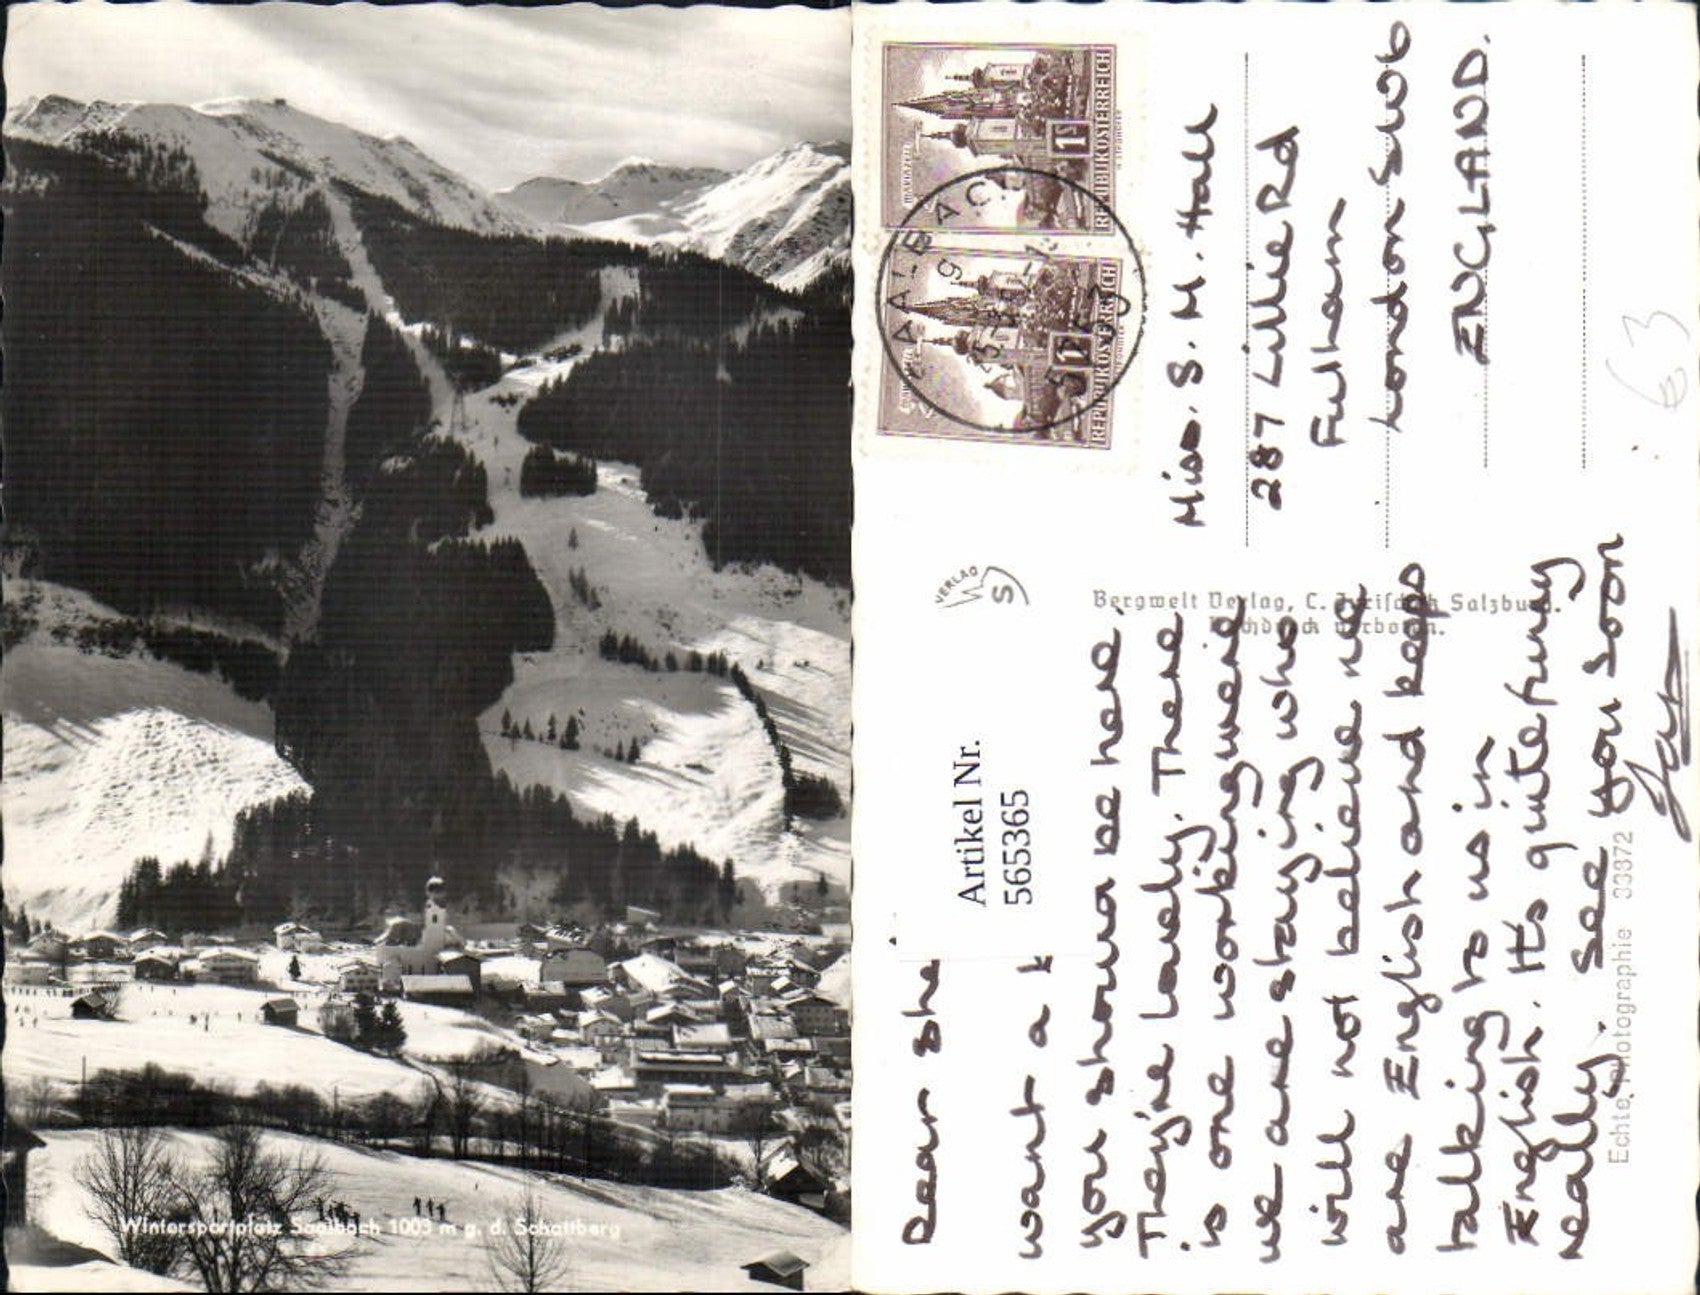 Wintersportplatz Saalbach 1003 m g. d. Schattberg
REPUBLIK ÖSTERREICH
MARIAZELL
1S
REPUBLIK ÖSTERREICH
1S
SAALBACH
63
Miss. S. M. Hall
287 Lillie Rd
Fulham
London SW6
ENGLAND.
63
VERLAG
WS
Bergwelt Verlag, C. Jurischek Salzburg.
Nachdruck verboten.
Artikel Nr.
565365
Dear She
want a
you should be here,
They're lovely. There
is one working where
we are staying who
will not believe we
are English and keeps
talking to us in
English. It's quite funny
really. See you soon
Echte Photographie 33372